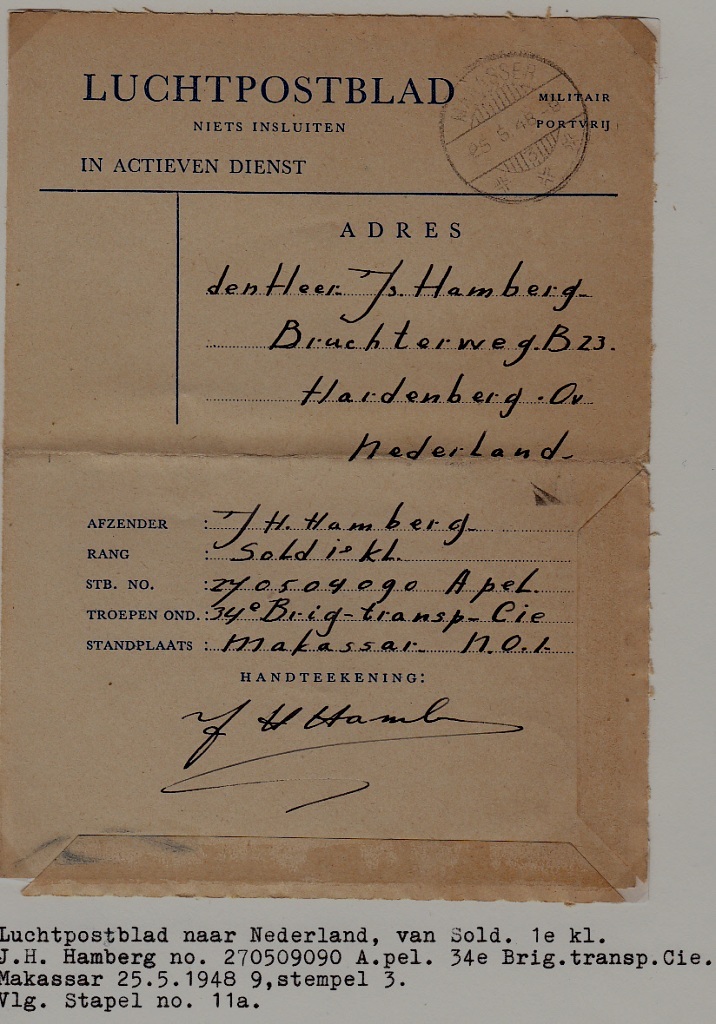 LUCHTPOSTBLAD
MILITAIR
PORTVRIJ
NIETS INSLUITEN
IN ACTIEVEN DIENST
MAKASSER
25 5 48 9
3
ADRES
den Heer Js. Hamberg
Bruchterweg B 23.
Hardenberg. Ov
Nederland
AFZENDER : J H. Hamberg
RANG : Sold 1e kl.
STB. NO. : 270509090 Apel.
TROEPEN OND. : 34e Brig-transp-Cie
STANDPLAATS : Makassar N.O.I.
HANDTEEKENING:
J H Hamb
Luchtpostblad naar Nederland, van Sold. 1e kl.
J.H. Hamberg no. 270509090 A.pel. 34e Brig.transp.Cie.
Makassar 25.5.1948 9,stempel 3.
Vlg. Stapel no. 11a.